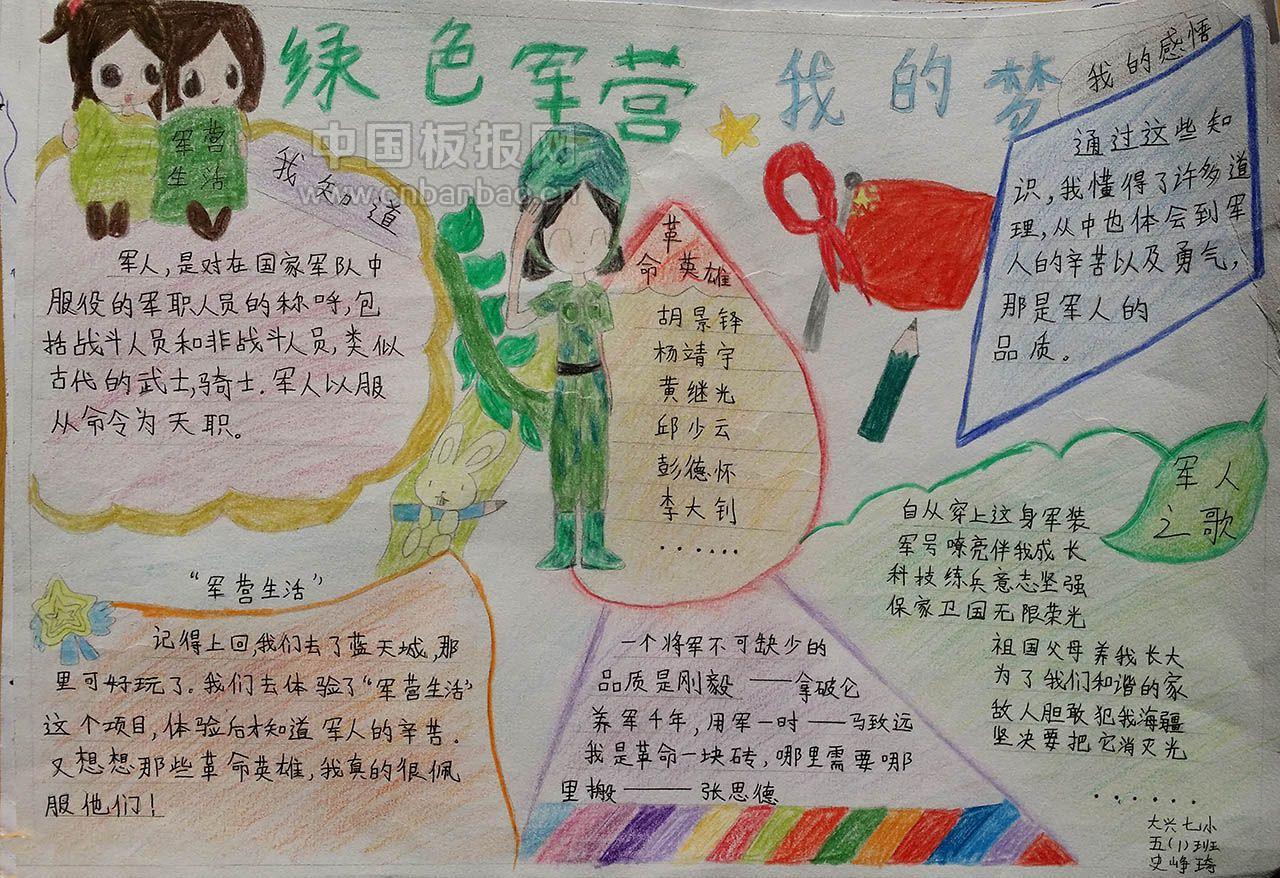 绿色军营 我的梦
中国板报网
www.cnbanbao.cn
军营
生活
我知道
军人，是对在国家军队中
服役的军职人员的称呼，包
括战斗人员和非战斗人员，类似
古代的武士，骑士．军人以服
从命令为天职。
革
命英雄
胡景铎
杨靖宇
黄继光
邱少云
彭德怀
李大钊
······
我的感悟
通过这些知
识，我懂得了许多道
理，从中也体会到军
人的辛苦以及勇气，
那是军人的
品质。
军人
之歌
自从穿上这身军装
军号嘹亮伴我成长
科技练兵意志坚强
保家卫国无限荣光
祖国父母养我长大
为了我们和谐的家
敌人胆敢犯我海疆
坚决要把它消灭光
······
“军营生活”
记得上回，我们去了蓝天城，那
里可好玩了．我们去体验了“军营生活”
这个项目，体验后才知道军人的辛苦．
又想想那些革命英雄，我真的很佩
服他们！
一个将军不可缺少的
品质是刚毅 ——拿破仑
养军千年，用军一时——马致远
我是革命一块砖，哪里需要哪
里搬——张思德
大兴七小
五（1）班
史峥琦